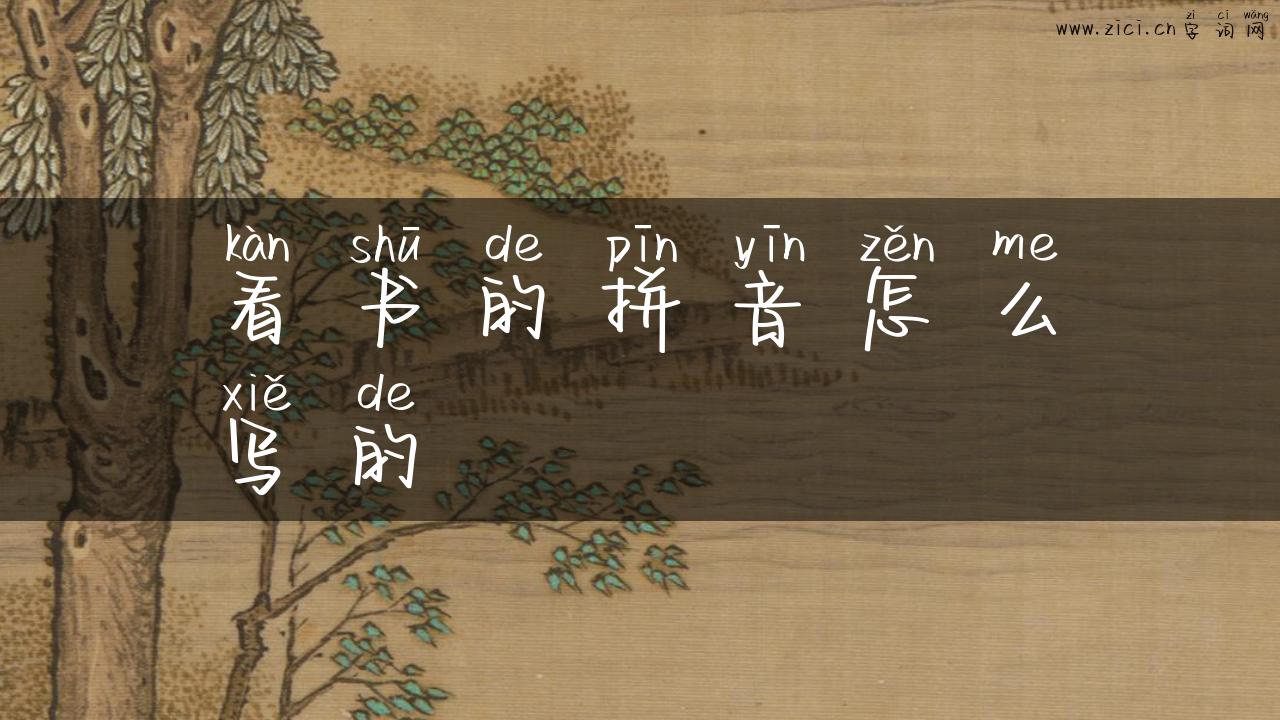 zì cí wǎng
www.zici.cn 字词网
kàn shū de pīn yīn zěn me
看书的拼音怎么
xiě de
写的